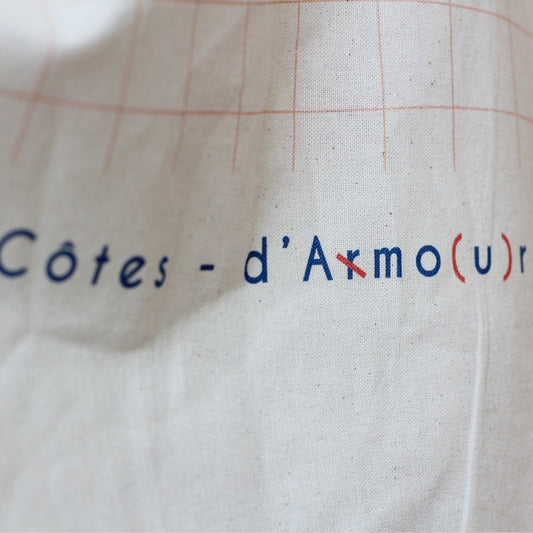 Côtes - d'Armo(u)r